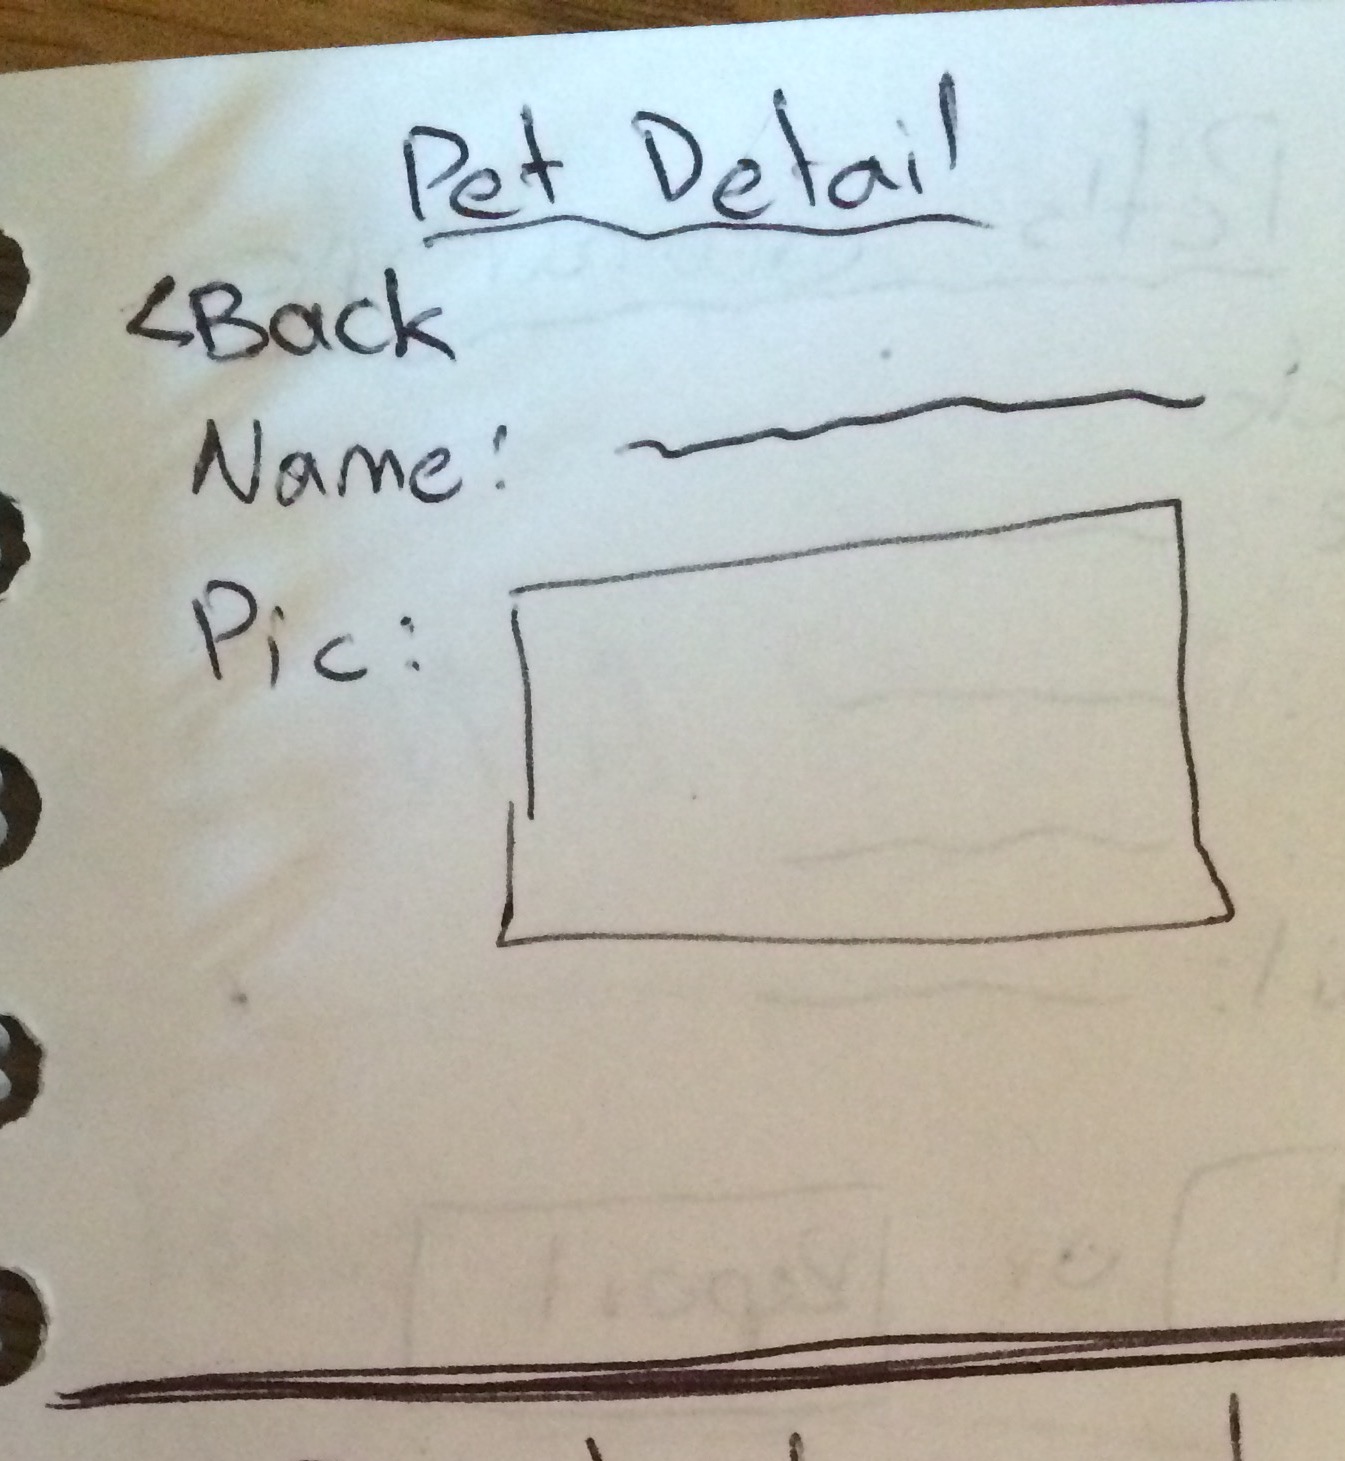 Pet Detail
<Back
Name:
Pic: